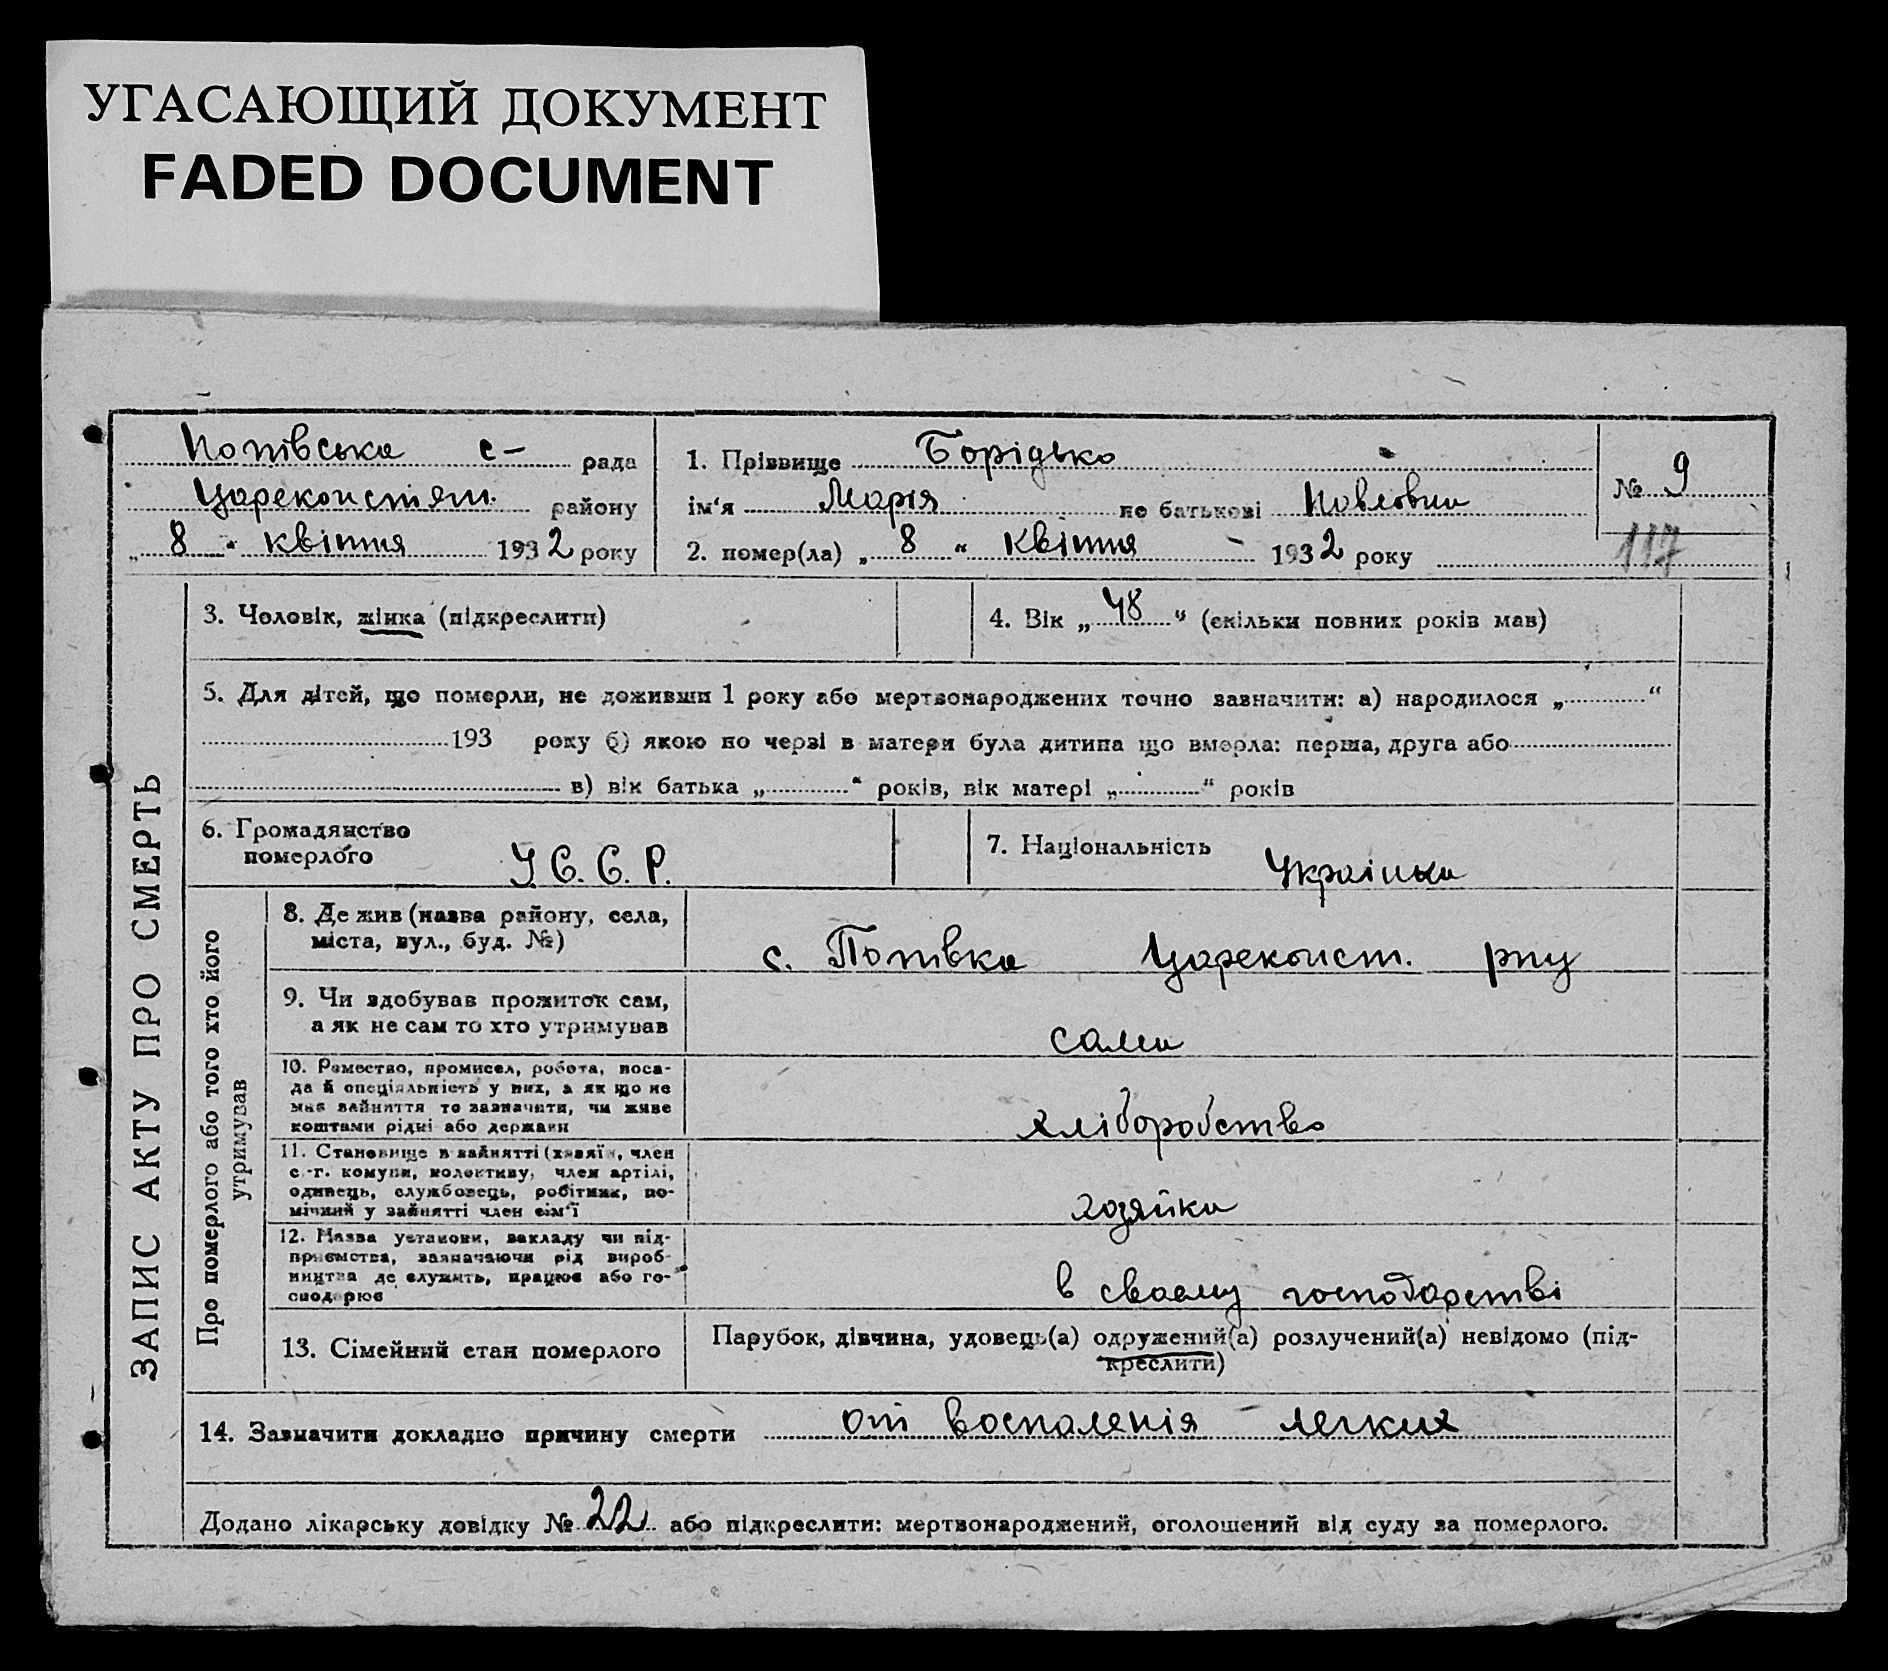 УГАСАЮЩИЙ ДОКУМЕНТ
FADED DOCUMENT
Попівська с- рада
Цареконстян. району
„ 8 “ квітня 1932 року
1. Прізвище Борідько
ім‘я Марія по батькові Павловна
2. помер(ла) „ 8 “ квітня - 1932 року
№ 9
117
ЗАПИС АКТУ ПРО СМЕРТЬ
3. Чоловік, жінка (підкреслити)
4. Вік „ 48 “ (скільки повних років мав)
5. Для дітей, що померли, не доживши 1 року або мертвонароджених точно зазначити: а) народилося „ “
193 року б) якою по черзі в матери була дитина що вмерла: перша, друга або
в) вік батька „ “ років, вік матері „ “ років
6. Громадянство
померлого У. С. С. Р.
7. Національність Українка
Про померлого або того хто його
утримував
8. Де жив (назва району, села,
міста, вул., буд. №)
с. Попівка Цареконст. рну
9. Чи здобував прожиток сам,
а як не сам то хто утримував
сама
10. Рамество, промисел, робота, поса-
да й спеціяльність у них, а як що не
має зайняття то зазначити, чи живе
коштами рідні або держави
хліборобство
11. Становище в зайнятті (хазяїн, член
с.-г. комуни, колективу, член артілі,
одинець, службовець, робітник, по-
мічний у зайнятті член сім‘ї
хозяйка
12. Назва установи, закладу чи під-
приємства, зазначаючи рід вироб-
ництва де служить, працює або го-
сподарює
в своєму господарстві
13. Сімейний стан померлого
Парубок, дівчина, удовець(а) одружений(а) розлучений(а) невідомо (під-
креслити)
14. Зазначити докладно причину смерти от воспаленія легких
Додано лікарську довідку № 22 або підкреслити: мертвонароджений, оголошений від суду за померлого.